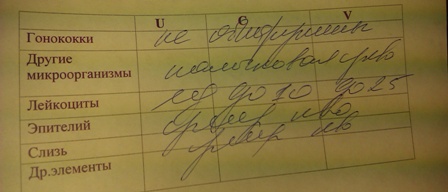 U C V
Гонококки не обнаружены
Другие
микроорганизмы палочковая ф-ла
Лейкоциты ед до 10 до 25
Эпителий
Слизь
Др.элементы